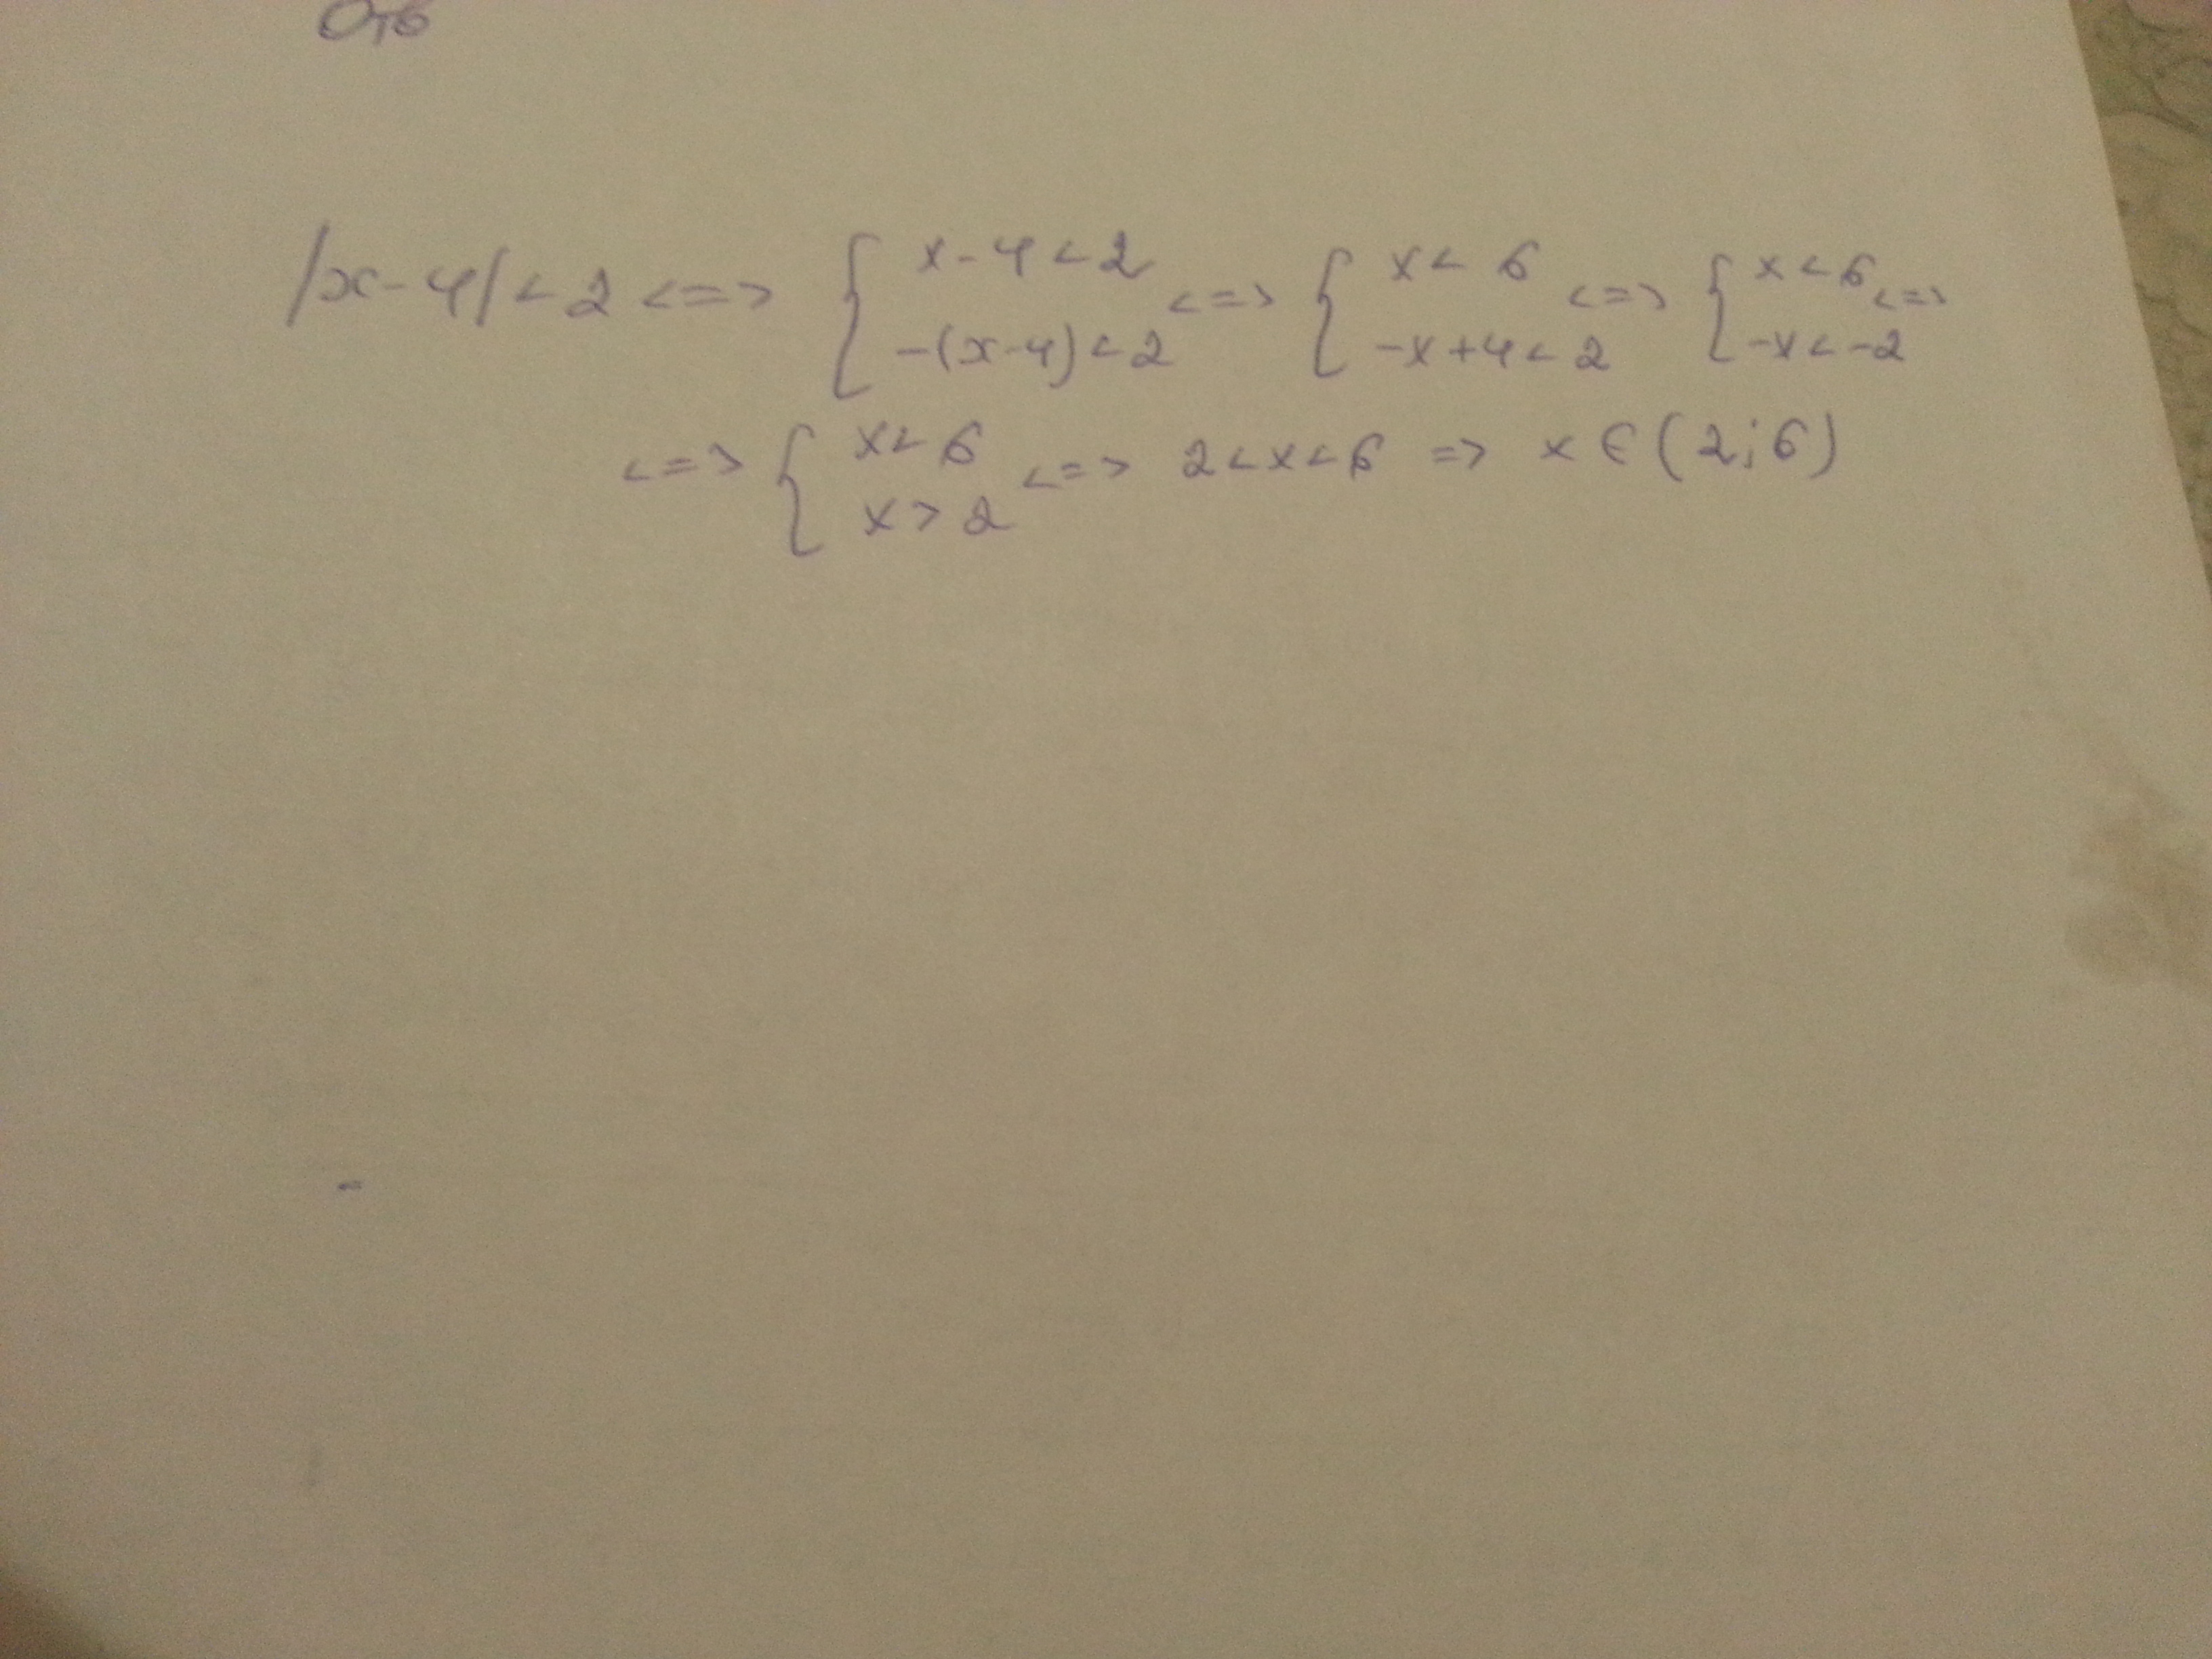 Отв
|x-4|<2 <=> { x-4<2 -(x-4)<2 <=> { x<6 -x+4<2 <=> { x<6 -x<-2 <=>
<=> { x<6 x>2 <=> 2<x<6 => x∈(2;6)